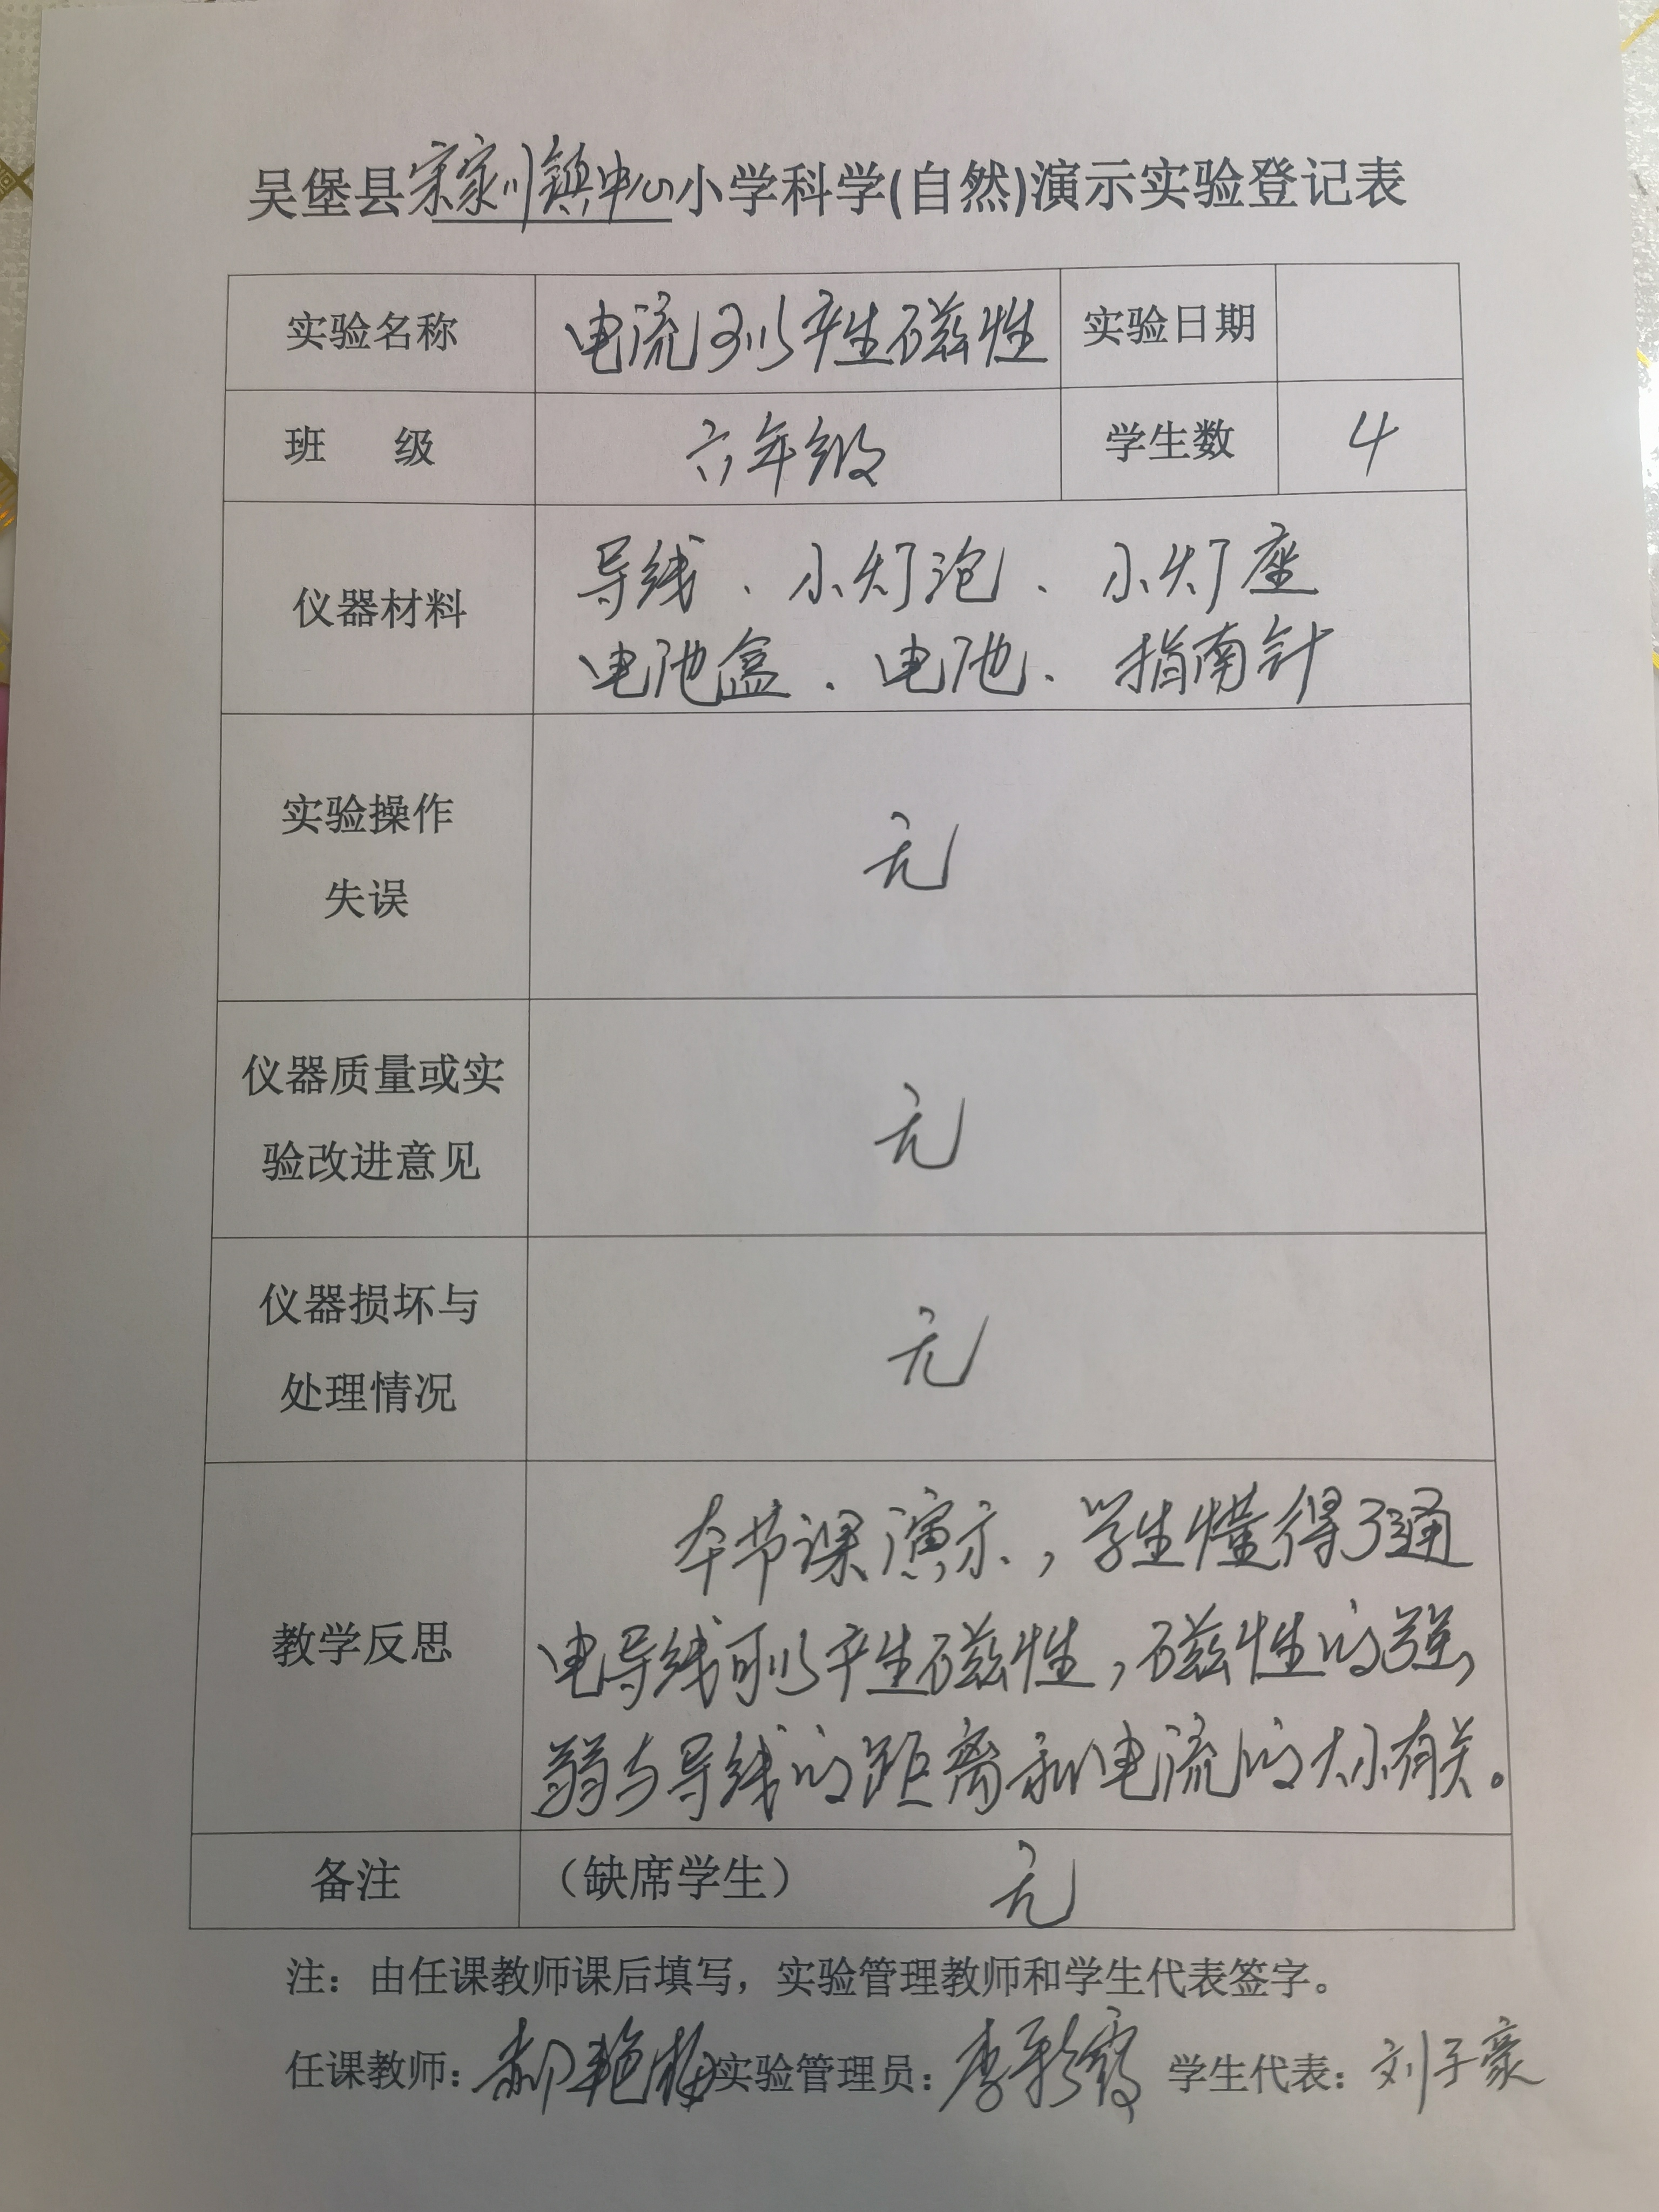 吴堡县宋家川镇中心小学科学(自然)演示实验登记表
实验名称 电流可以产生磁性 实验日期
班 级 六年级 学生数 4
仪器材料
导线、小灯泡、小灯座
电池盒、电池、指南针
实验操作
失误
无
仪器质量或实
验改进意见
无
仪器损坏与
处理情况
无
教学反思
本节课演示,学生懂得了通
电导线可以产生磁性,磁性的强
弱与导线的距离和电流的大小有关。
备注 (缺席学生) 无
注:由任课教师课后填写,实验管理教师和学生代表签字。
任课教师:郝艳梅 实验管理员:李彩霞 学生代表:刘子豪